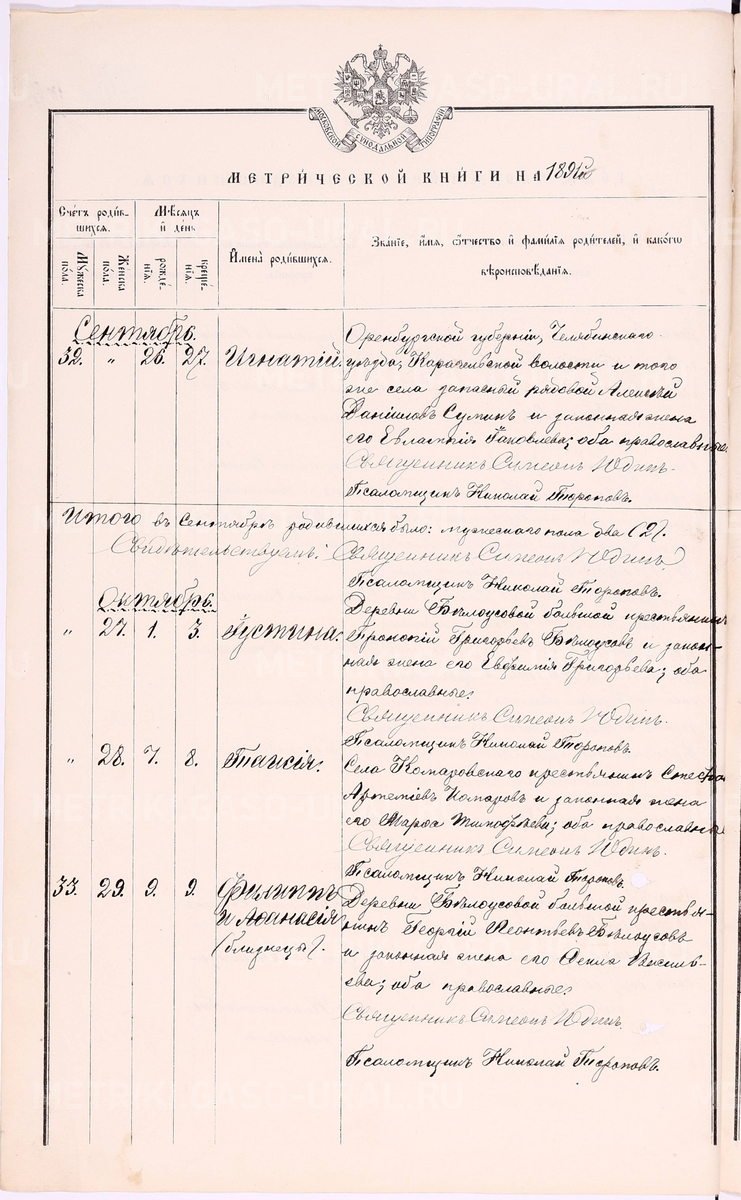 МОСКОВСКОЙ СѴНОДАЛЬНОЙ ТИПОГРАФІИ
МЕТРИ́ЧЕСКОЙ КНИ́ГИ НА
Сче́тъ роди́в-
шихсѧ.
Мѣ́сѧцъ
и҆ де́нь
Мꙋ́жеска
по́ла.
Же́нска
по́ла.
рожде́-
нїѧ.
креще́-
нїѧ.
И҆мена̀ роди́вшихсѧ.
Зва́нїе, и҆́мѧ, ѻ҆́тчество и҆ фами́лїѧ роди́телей, и҆ како́гѡ
вѣроисповѣ́данїѧ.
Сентябрь.
32. " 26. 27. Игнатій.
Оренбургской губерніи, Челябинскаго
уѣзда, Карачельской волости и того
же села запасный рядовой Алексѣй
Даніиловъ Суминъ и законная жена
его Евлампія Яковлева; оба православные.
Священникъ Симеонъ Юдинъ.
Псаломщикъ Николай Тороповъ.
Итого въ Сентябрѣ родившихся было: мужескаго пола два (2).
Свидѣтельствуемъ: Священникъ Симеонъ Юдинъ.
Псаломщикъ Николай Тороповъ.
Октябрь.
" 27. 1. 3. Іустина.
Деревни Бѣлоусовой большой крестьянинъ
Прокопій Григорьевъ Бѣлоусовъ и закон-
ная жена его Евфимія Григорьева; оба
православные.
Священникъ Симеонъ Юдинъ.
Псаломщикъ Николай Тороповъ.
" 28. 7. 8. Таисія.
Села Комаровскаго крестьянинъ
Артеміевъ Комаровъ и законная жена
его Марѳа Тимоѳѣева; оба православные
Священникъ Симеонъ Юдинъ.
Псаломщикъ Николай Тороповъ.
33. 29. 9. 9. Филиппъ
и Аѳанасія
(близнецы).
Деревни Бѣлоусовой большой крестья-
нинъ Георгій Леонтьевъ Бѣлоусовъ
и законная жена его Ѳекла Василь-
ева; оба православные.
Священникъ Симеонъ Юдинъ.
Псаломщикъ Николай Тороповъ.